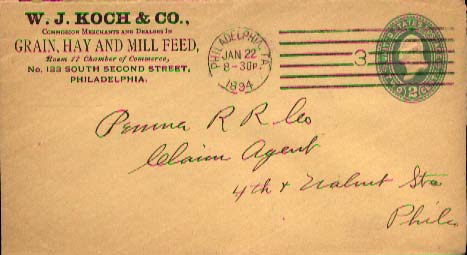 W. J. KOCH & CO.,
COMMISSION MERCHANTS AND DEALERS IN
GRAIN, HAY AND MILL FEED,
Room 17 Chamber of Commerce,
No. 133 SOUTH SECOND STREET,
PHILADELPHIA.
PHILADELPHIA, PA.
JAN 22
8-30P.
1894
3
UNITED STATES
2
Penna R R Co
Claim Agent
4th & Walnut Sts
Phila